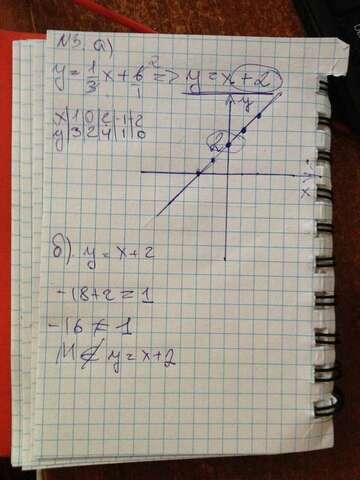 №3. а)
y = 1/3 x + 6/1 ² => y = x + 2
x | 1 | 0 | 2 | -1 | -2
y | 3 | 2 | 4 | 1 | 0
y
2
x
б). y = x + 2
-18 + 2 = 1
-16 ≠ 1
M ∉ y = x + 2